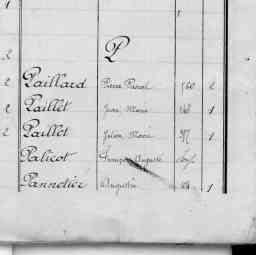 1
2 P
2 Paillard Pierre 760 2
2 Paillet Jean Marie 1
2 Paillet Julien Marie 1
Palicot François Auguste
Pannetier Augustin 1